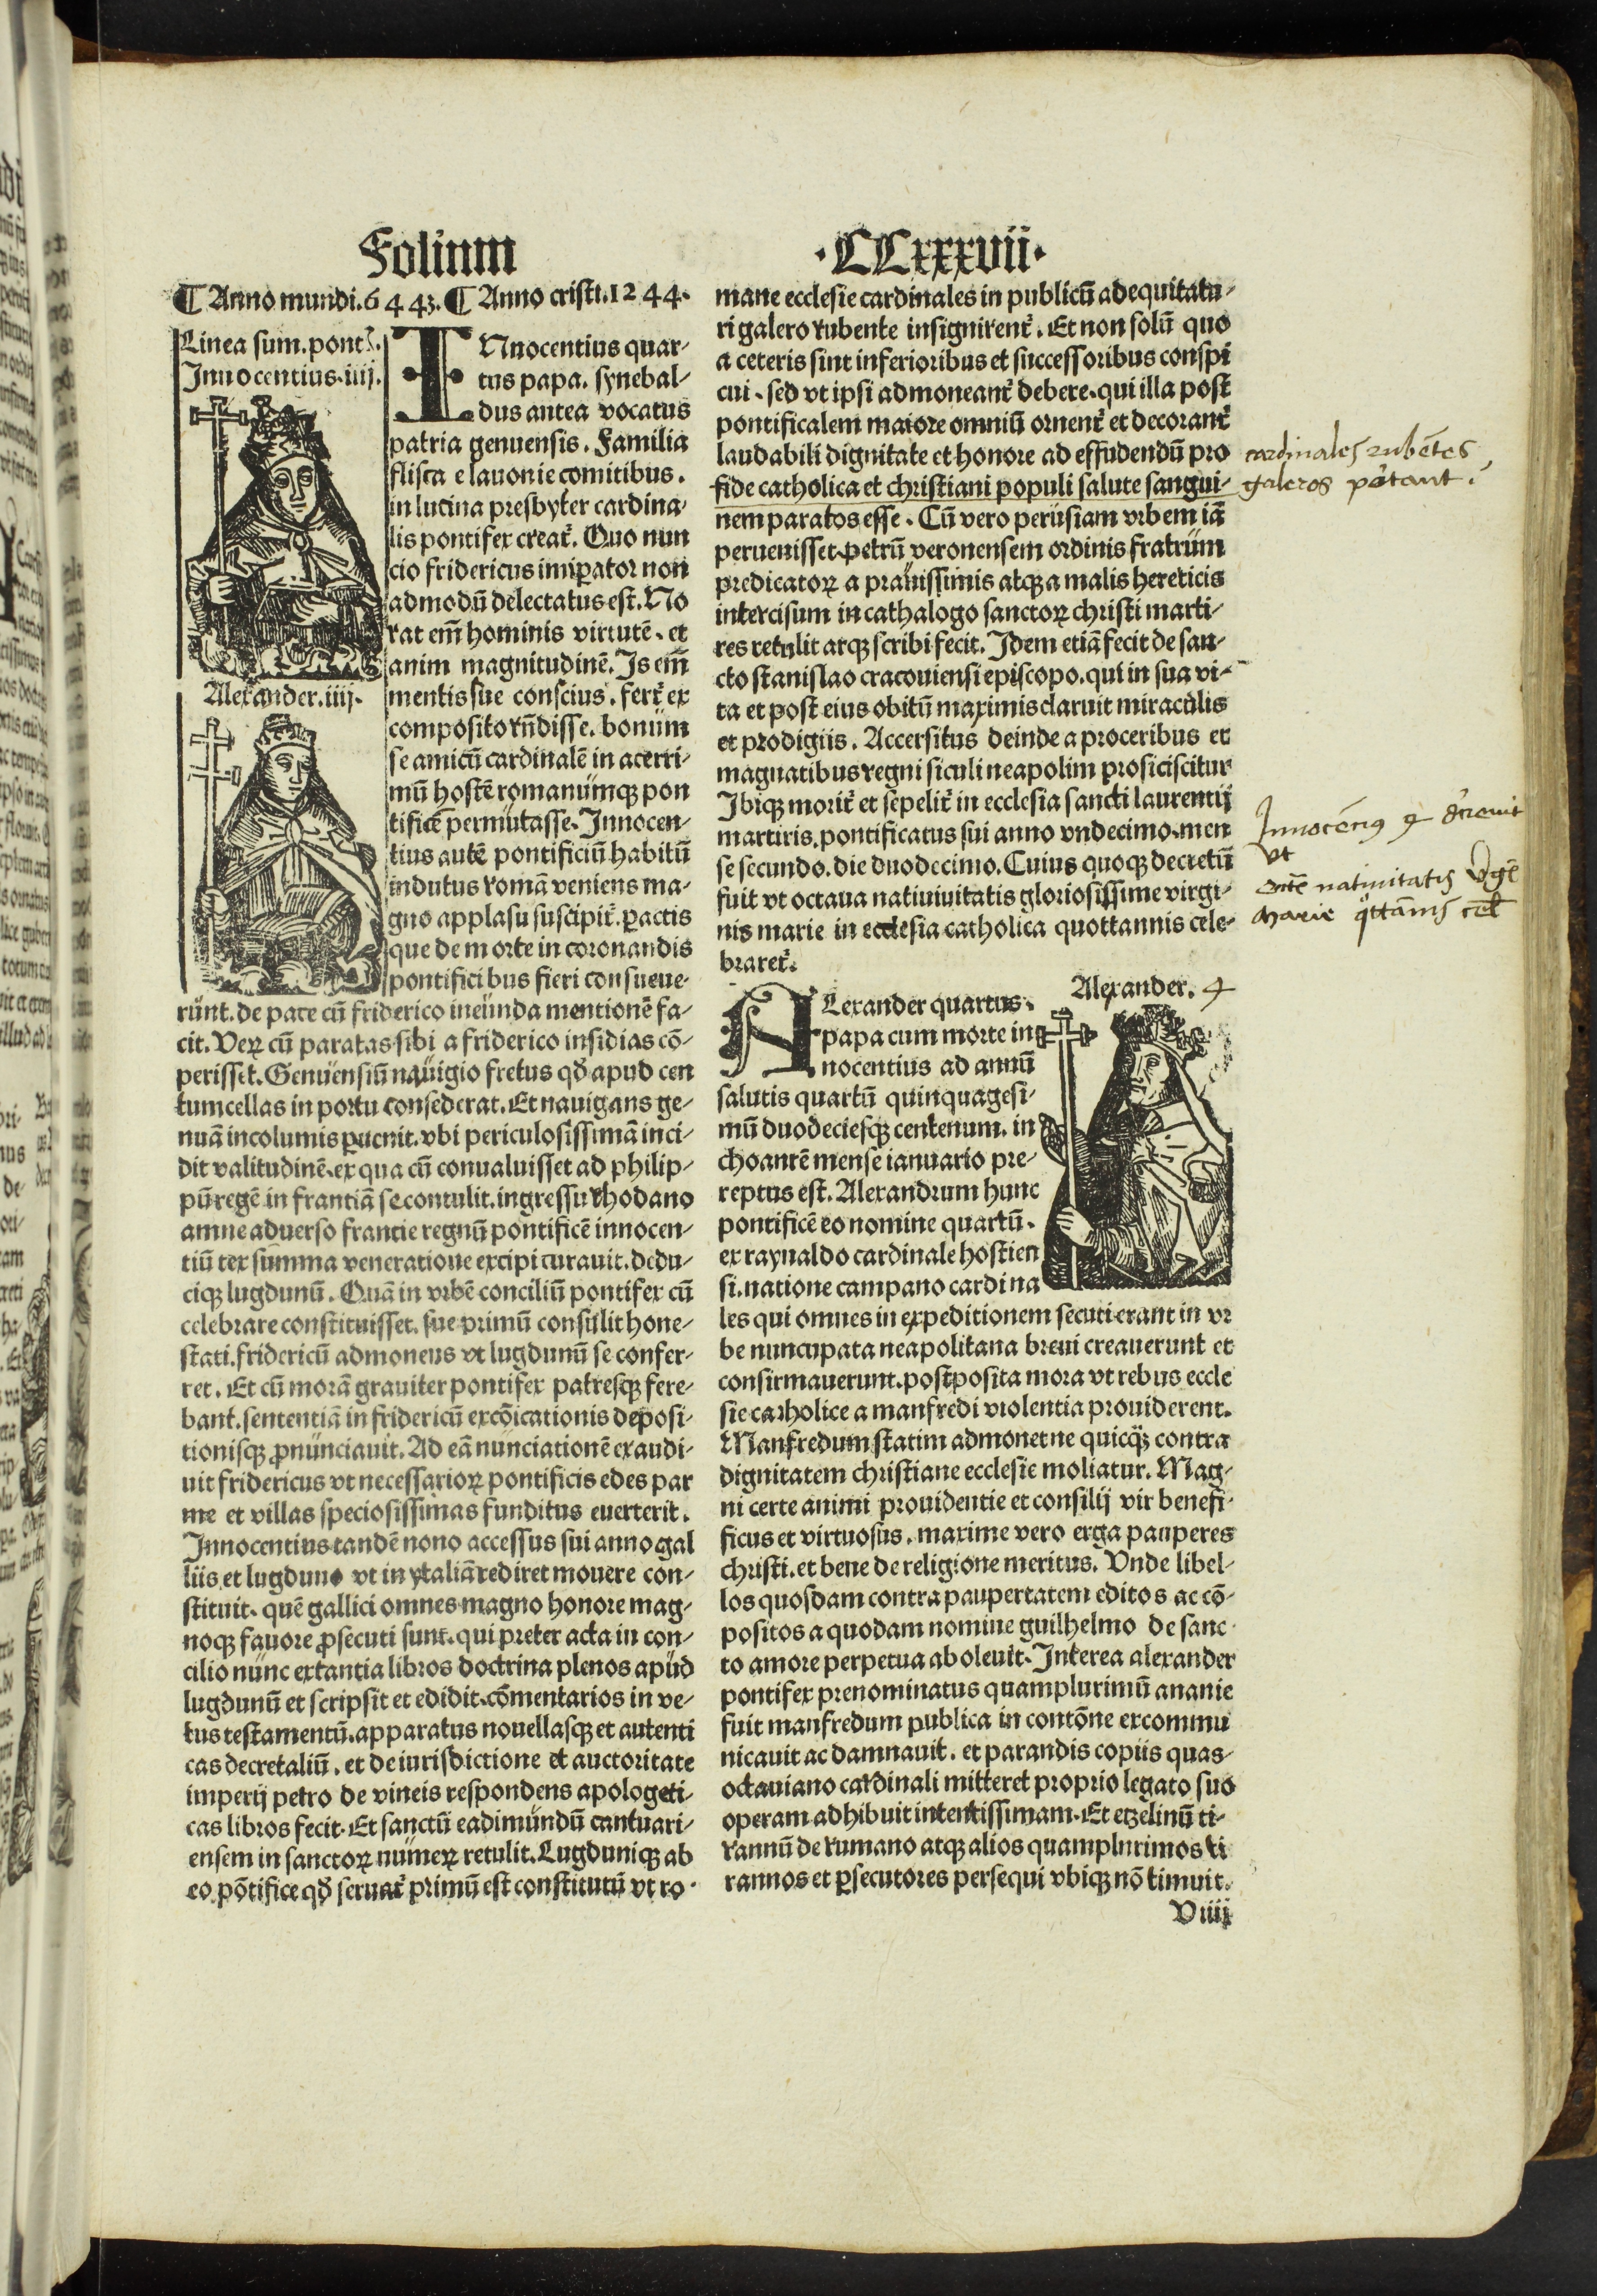 Folium ·CCxxxvii·
¶ Anno mundi.6443.¶ Anno cristi.1244.
Linea sum.pont̉.
Innocentius.iiij.
Alexander.iiij.
INnocentius quar-
tus papa. synebal-
dus antea vocatus
patria genuensis. Familia
flisca e lauonie comitibus.
in lucina presbyter cardina-
lis pontifex creat̉. Quo nun
cio fridericus imꝑator non
admodū delectatus est. No
rat em̄ hominis virtutē. et
anim magnitudinē. Is em̄
mentis sue conscius. fert̉ ex
composito rn̄disse. bonum
se amicū cardinalē in acerri-
mū hostē romanumqꝫ pon
tificē permutasse. Innocen-
tius autē pontificiū habitū
indutus romā veniens ma-
gno applasu suscipit̉. ꝑactis
que de morte in coronandis
pontificibus fieri consueue-
runt. de pace cū friderico ineunda mentionē fa-
cit. Veꝝ cū paratas sibi a friderico insidias cō-
perisset. Genuensiū nauigio fretus qd̛ apud cen
tumcellas in portu consederat. Et nauigans ge-
nuā incolumis ꝑuenit. vbi periculosissimā inci-
dit valitudinē. ex qua cū conualuisset ad philip-
pū regē in frantiā se contulit. ingressu rhodano
amne aduerso francie regnū pontificē innocen-
tiū tex summa veneratione excipi curauit. dedu-
ciqꝫ lugdunū. Quā in vrbē conciliū pontifex cū
celebrare constituisset. sue primū consulit hone-
stati. fridericū admonens vt lugdunū se confer-
ret. Et cū morā grauiter pontifex patresqꝫ fere-
bant. sententiā in fridericū excōicationis deposi-
tionisqꝫ ꝓnunciauit. Ad eā nunciationē exaudi-
uit fridericus vt necessarioꝝ pontificis edes par
me et villas speciosissimas funditus euerterit.
Innocentius tandē nono accessus sui anno gal
liis et lugduno vt in ytaliā rediret mouere con-
stituit. quē gallici omnes magno honore mag-
noqꝫ fauore ꝓsecuti sunt. qui preter acta in con-
cilio nunc extantia libros doctrina plenos apud
lugdunū et scripsit et edidit. cōmentarios in ve-
tus testamentū. apparatus nouellasqꝫ et autenti
cas decretaliū. et de iurisdictione et auctoritate
imperij petro de vineis respondens apologeti-
cas libros fecit. Et sanctū eadimundū cantuari-
ensem in sanctoꝝ numeꝝ retulit. Lugduniqꝫ ab
eo pōtifice qd̛ seruat̉ primū est constitutū vt ro-
mane ecclesie cardinales in publicū adequitatu-
ri galero rubente insignirent̉. Et non solū quo
a ceteris sint inferioribus et successoribus conspi
cui. sed vt ipsi admoneant̉ debere. qui illa post
pontificalem maiore omniū ornent̉ et decorant̉
laudabili dignitate et honore ad effudendū pro
fide catholica et christiani populi salute sangui-
nem paratos esse. Cū vero perusiam vrbem iā
peruenisset. petrū veronensem ordinis fratrum
predicatoꝝ a prauissimis atqꝫ a malis hereticis
intercisum in cathalogo sanctoꝝ christi marti-
res retulit atqꝫ scribi fecit. Idem etiā fecit de san-
cto stanislao cracouiensi episcopo. qui in sua vi-
ta et post eius obitū maximis claruit miraculis
et prodigiis. Accersitus deinde a proceribus et
magnatibus regni siculi neapolim proficiscitur
Ibiqꝫ morit̉ et sepelit̉ in ecclesia sancti laurentij
martiris. pontificatus sui anno vndecimo. men
se secundo. die duodecimo. Cuius quoqꝫ decretū
fuit vt octaua natiuiuitatis gloriosissime virgi-
nis marie in ecclesia catholica quottannis cele-
braret̉.
Alexander. 4
ALexander quartus.
papa cum morte in
nocentius ad annū
salutis quartū quinquagesi-
mū duodeciesqꝫ centenum. in
choantē mense ianuario pre-
reptus est. Alexandrum hunc
pontificē eo nomine quartū.
ex raynaldo cardinale hostien
si. natione campano cardina
les qui omnes in expeditionem secuti erant in vr
be nuncupata neapolitana breui creauerunt et
confirmauerunt. postposita mora vt rebus eccle
sie catholice a manfredi violentia prouiderent.
Manfredum statim admonet ne quicqꝫ contra
dignitatem christiane ecclesie moliatur. Mag-
ni certe animi prouidentie et consilij vir benefi-
ficus et virtuosus. maxime vero erga pauperes
christi. et bene de religione meritus. Vnde libel-
los quosdam contra paupertatem editos ac cō-
positos a quodam nomine guilhelmo de sanc-
to amore perpetua aboleuit. Interea alexander
pontifex prenominatus quamplurimū ananie
fuit manfredum publica in contōne excommu
nicauit ac damnauit. et parandis copiis quas-
octauiano cardinali mitteret proprio legato suo
operam adhibuit intentissimam. Et etzelinū ti-
rannū de rumano atqꝫ alios quamplurimos ti
rannos et ꝑsecutores persequi vbiqꝫ nō timuit.
V iiij
cardinales rubētes
galeros portant.
Innocētius 4 decreuit
vt
octē natiuitatis Virgē
Marie qttānis cel